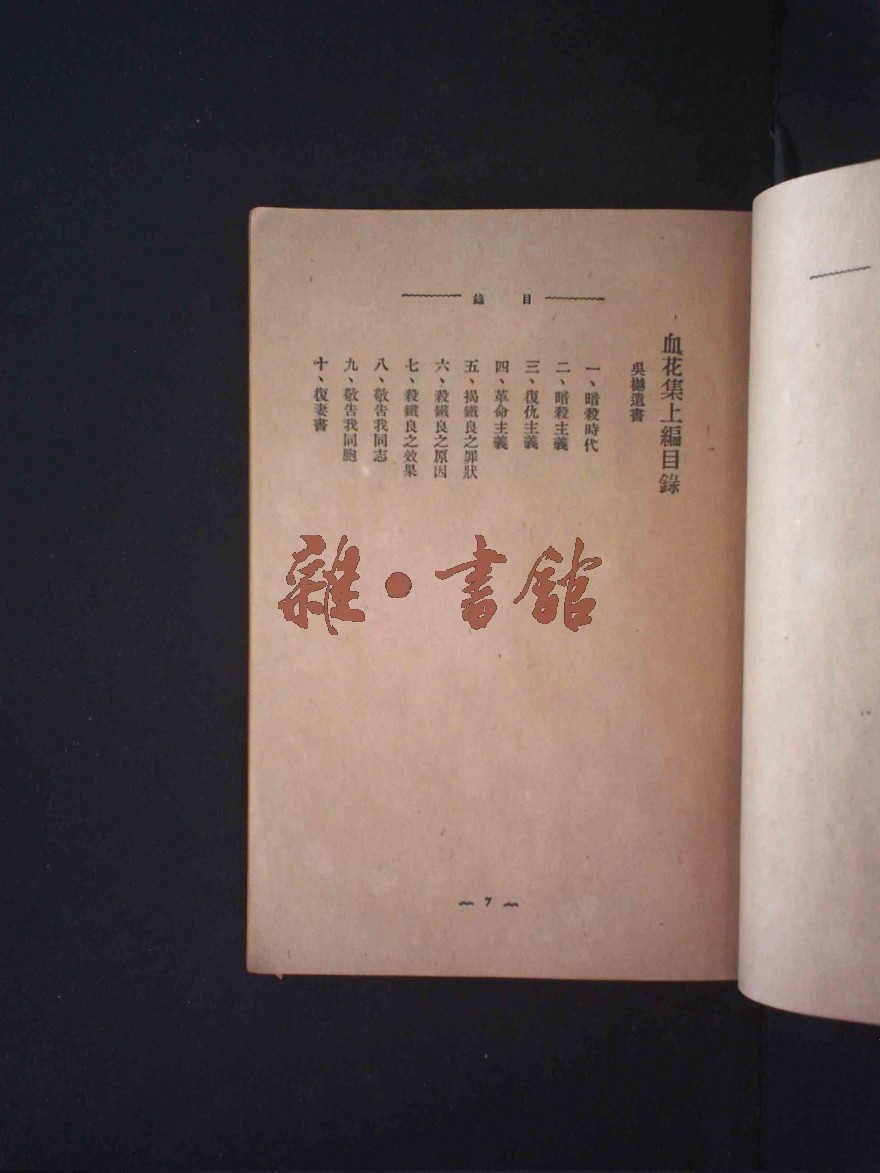 目錄
血花集上編目錄
吳樾遺書
一、暗殺時代
二、暗殺主義
三、復仇主義
四、革命主義
五、揭鐵良之罪狀
六、殺鐵良之原因
七、殺鐵良之效果
八、敬告我同志
九、敬告我同胞
十、復妻書
雜·書館
7